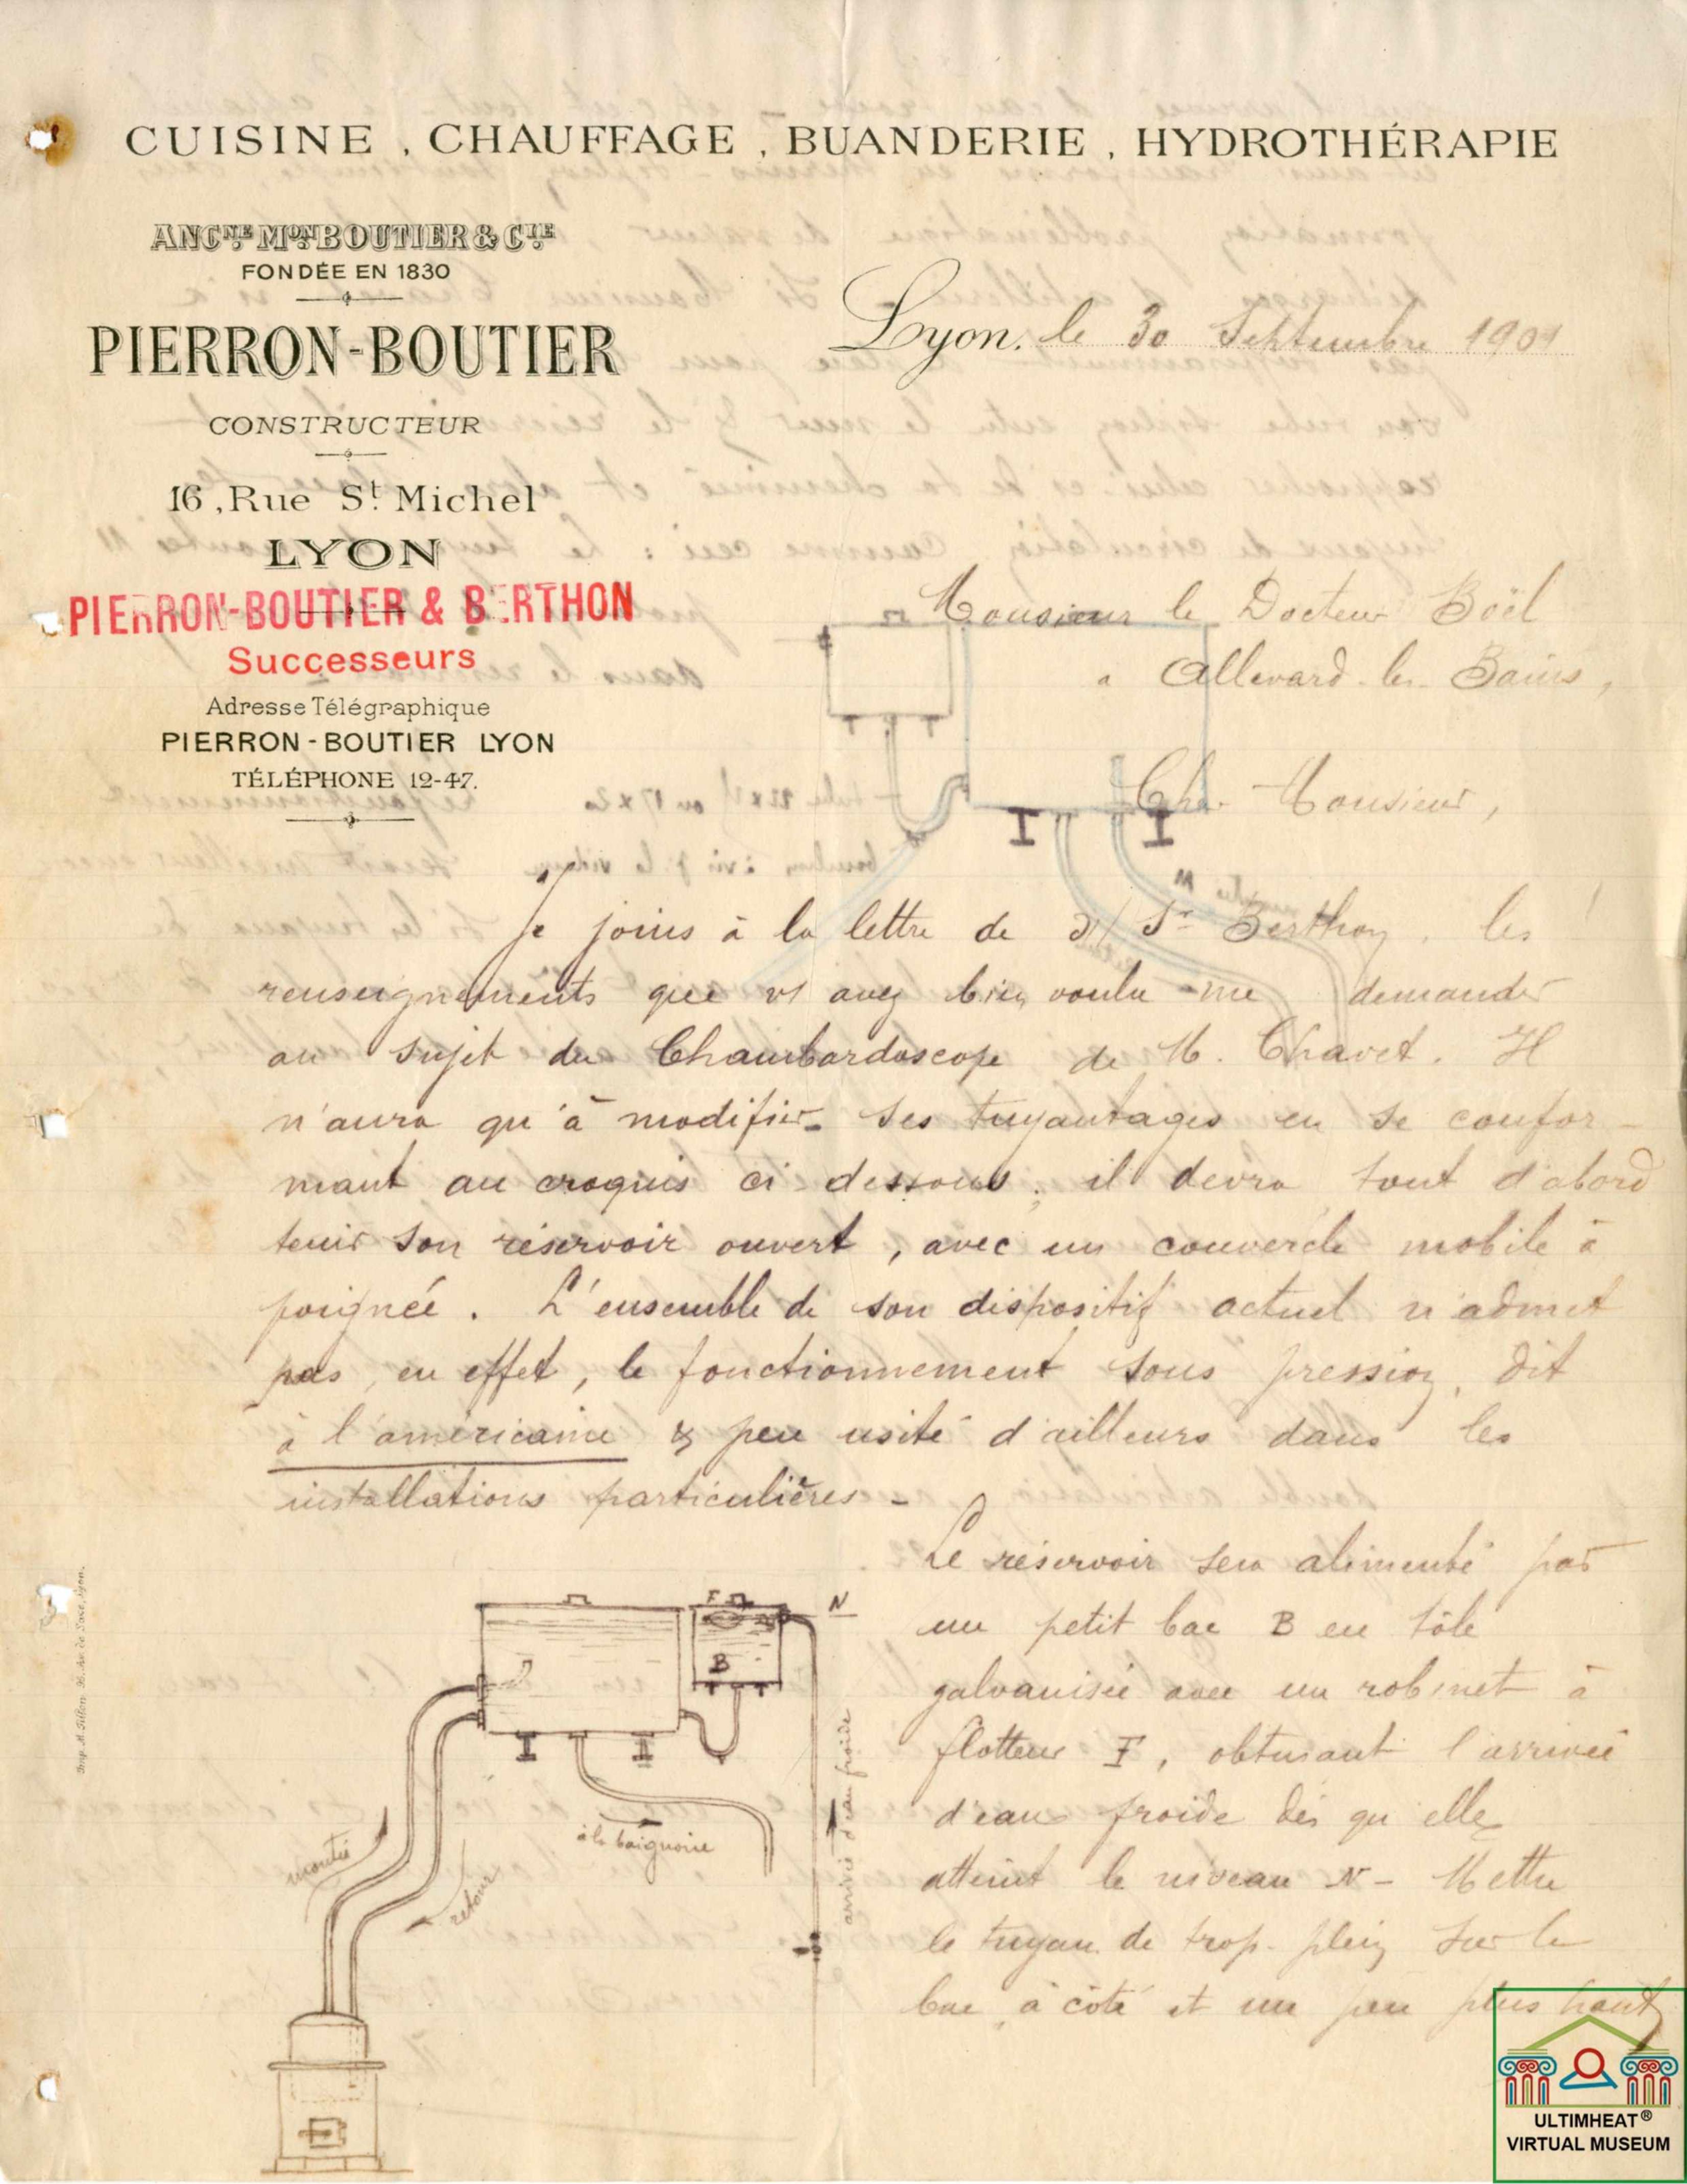 CUISINE, CHAUFFAGE, BUANDERIE, HYDROTHÉRAPIE
ANC.NE M.ON BOUTIER & C.IE
FONDÉE EN 1830
PIERRON-BOUTIER
CONSTRUCTEUR
16, Rue St. Michel
LYON
PIERRON-BOUTIER & BERTHON
Successeurs
Adresse Télégraphique
PIERRON-BOUTIER LYON
TÉLÉPHONE 12-47.
Lyon, le 30 Septembre 1901
Monsieur le Docteur Boël
à Allevard-les-Bains,
Cher Monsieur,
Je joins à la lettre de Sr Berthon, les
renseignements que vs avez bien voulu me demander
au sujet du Chambardoscope de M. Chavet. Il
n'aura qu'à modifier ses tuyautages en se confor-
mant au croquis ci dessous; il devra tout d'abord
tenir son réservoir ouvert, avec un couvercle mobile à
poignée. L'ensemble de son dispositif actuel n'admet
pas, en effet, le fonctionnement sous pression, dit
à l'américaine & peu usité d'ailleurs dans les
installations particulières -
Le réservoir sera alimenté par
un petit bac B en tôle
galvanisée avec un robinet à
flotteur F, obturant l'arrivée
d'eau froide dès qu'elle
atteint le niveau N - Mettre
le tuyau de trop-plein sur le
bac, à côté et un peu plus haut
F
N
B
à la baignoire
arrivée d'eau froide
montée
retour
ULTIMHEAT®
VIRTUAL MUSEUM